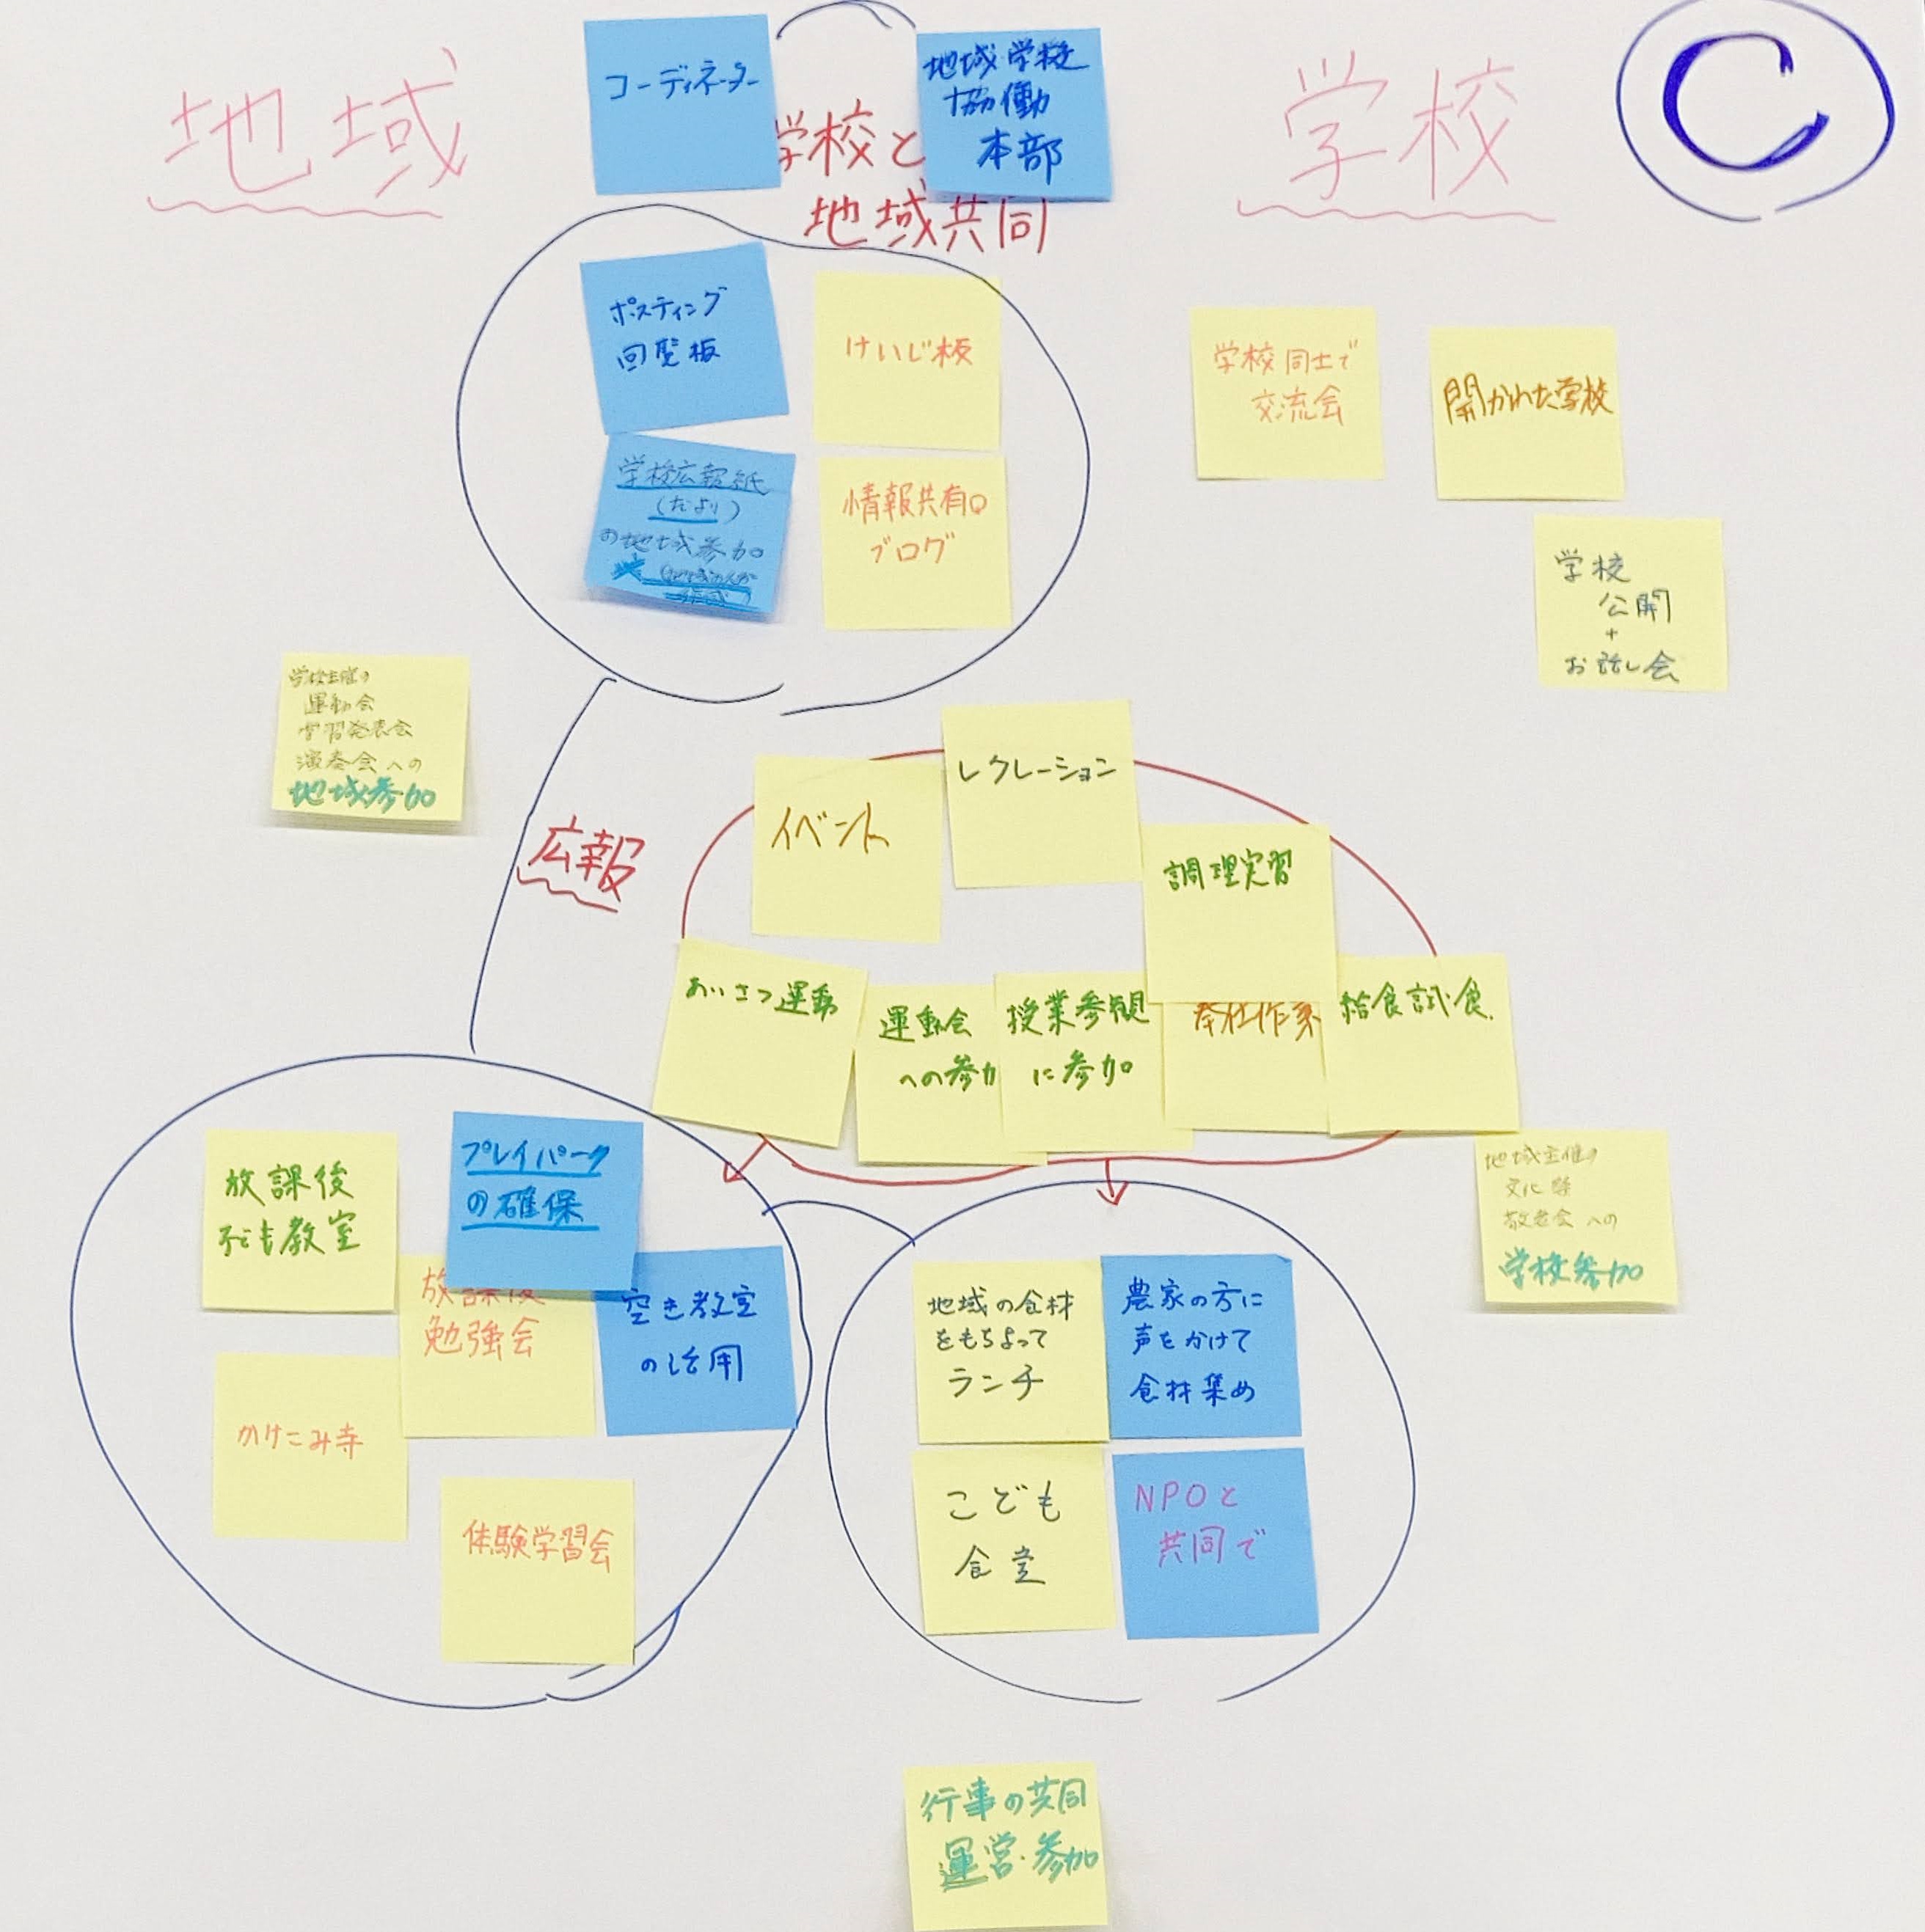 地域
コーディネーター
学校と
地域共同
地域学校
協働
本部
学校
C
ポスティング
回覧板
けいじ板
学校広報紙
(たより)
の地域参加
情報共有
ブログ
学校同士で
交流会
開かれた学校
学校
公開
+
お話し会
学校主催の
運動会
学習発表会
演奏会への
地域参加
広報
イベント
レクレーション
調理実習
あいさつ運動
運動会
への参加
授業参観
に参加
奉仕作業
給食試食
放課後
子ども教室
プレイパーク
の確保
放課後
勉強会
空き教室
の活用
かけこみ寺
体験学習会
地域の食材
をもちよって
ランチ
農家の方に
声をかけて
食材集め
こども
食堂
NPOと
共同で
地域主催の
文化祭
敬老会への
学校参加
行事の共同
運営・参加